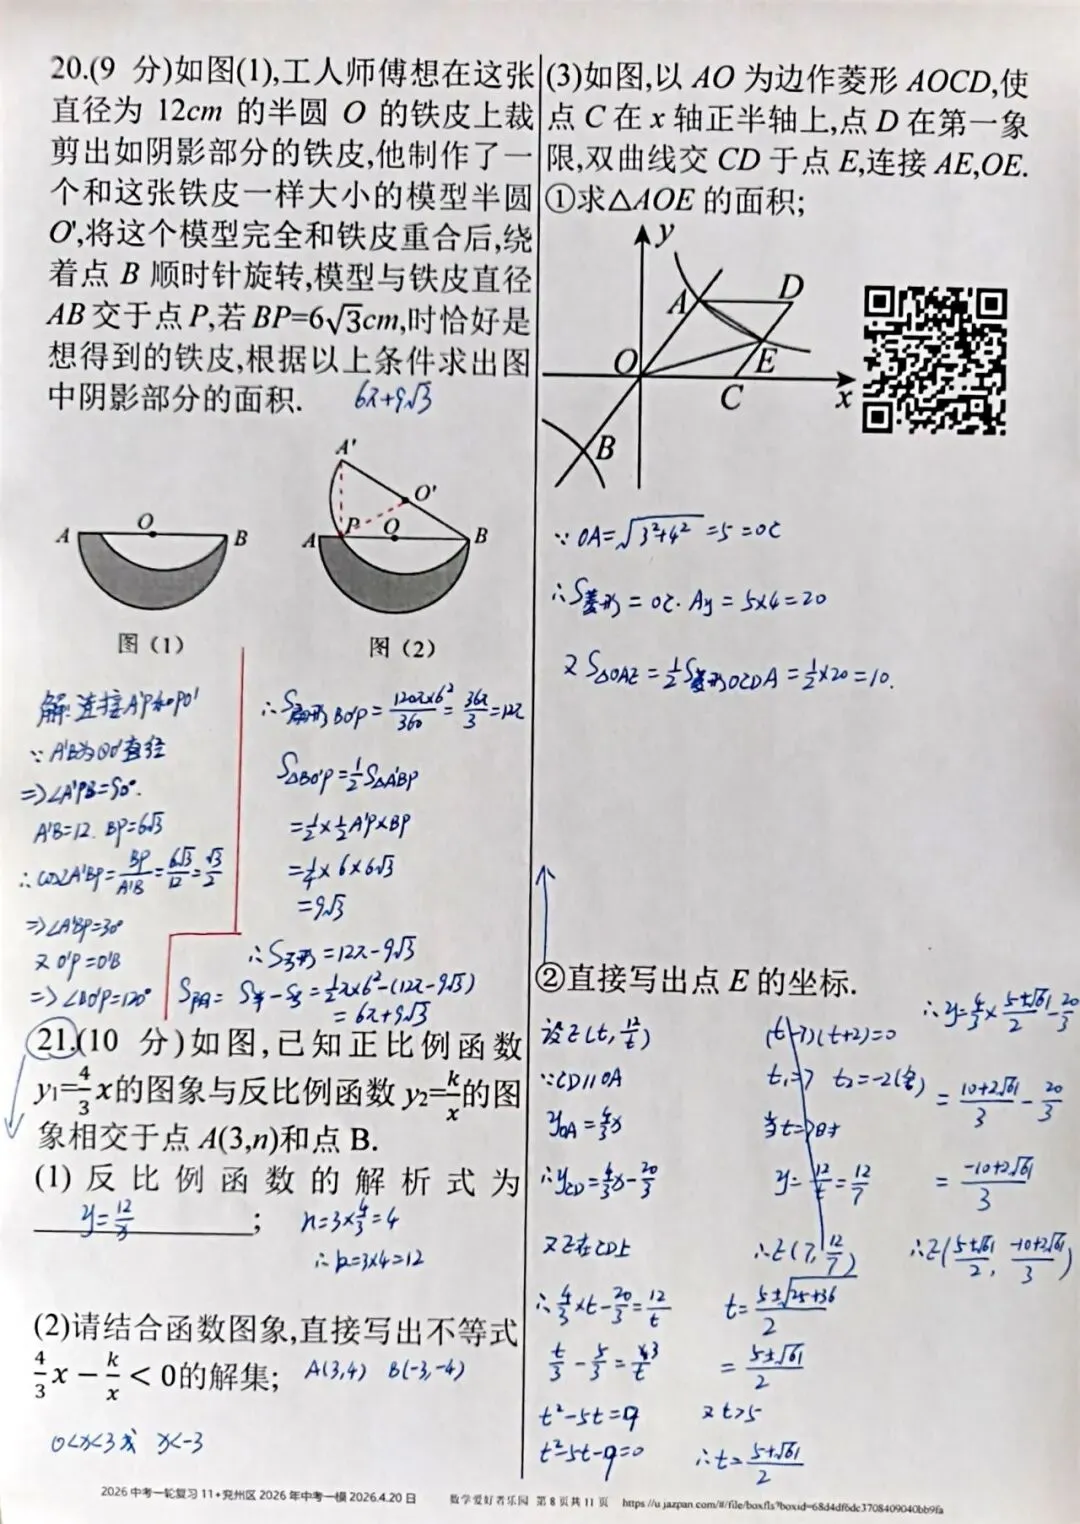 20.(9 分)如图(1),工人师傅想在这张
直径为 12cm 的半圆 O 的铁皮上裁
剪出如阴影部分的铁皮,他制作了一
个和这张铁皮一样大小的模型半圆
O',将这个模型完全和铁皮重合后,绕
着点 B 顺时针旋转,模型与铁皮直径
AB 交于点 P,若 BP=6√3cm,时恰好是
想得到的铁皮,根据以上条件求出图
中阴影部分的面积. 6π+9√3
A'
O'
A O B
A P O B
图（1） 图（2）
解:连接A'P和PO'
∵ A'B为⊙O'直径
⇒∠A'PB=90°.
A'B=12. BP=6√3
∴ cos∠A'BP=BP/A'B=6√3/12=√3/2
⇒∠A'BP=30°
又 O'P=O'B
⇒∠BO'P=120°
∴S扇形BO'P=120π×6²/360=36π/3=12π
S△BO'P=1/2S△A'BP
=1/2×1/2A'P×BP
=1/4×6×6√3
=9√3
∴S弓形=12π-9√3
S阴=S半-S弓=1/2π×6²-(12π-9√3)
=6π+9√3
21.(10 分)如图,已知正比例函数
y₁=4/3x的图象与反比例函数 y₂=k/x的图
象相交于点 A(3,n)和点 B.
(1) 反比例函数的解析式为
y=12/x ; n=3×4/3=4
∴k=3×4=12
(2)请结合函数图象,直接写出不等式
4/3x－k/x＜0的解集; A(3,4) B(-3,-4)
0<x<3或 x<-3
(3)如图,以 AO 为边作菱形 AOCD,使
点 C 在 x 轴正半轴上,点 D 在第一象
限,双曲线交 CD 于点 E,连接 AE,OE.
①求△AOE 的面积;
y
A D
O E
C x
B
∵ OA=√3²+4²=5=OC
∴S菱形=OC·Ay=5×4=20
又S△OAE=1/2S菱形OCDA=1/2×20=10.
②直接写出点 E 的坐标.
设E(t,12/t)
∵CD∥OA
yOA=4/3x
∴yCD=4/3x-20/3
又E在CD上
∴4/3×t-20/3=12/t
t/3-5/3=3/t
t²-5t=9
t²-5t-9=0
(t-7)(t+2)=0
t₁=7 t₂=-2(舍)
当t=7时
y=12/t=12/7
∴E(7,12/7)
t=5±√25+36/2
=5±√61/2
又t>5
∴t=5+√61/2
∴y=4/3×5+√61/2-20/3
=10+2√61/3-20/3
=-10+2√61/3
∴E(5+√61/2,-10+2√61/3)
2026 中考一轮复习 11+兖州区 2026 年中考一模 2026.4.20 日 数学爱好者乐园 第 8 页共 11 页 https://u.jazpan.com/#/file/boxfls?boxid=68d4df6dc3708409040bb9fa